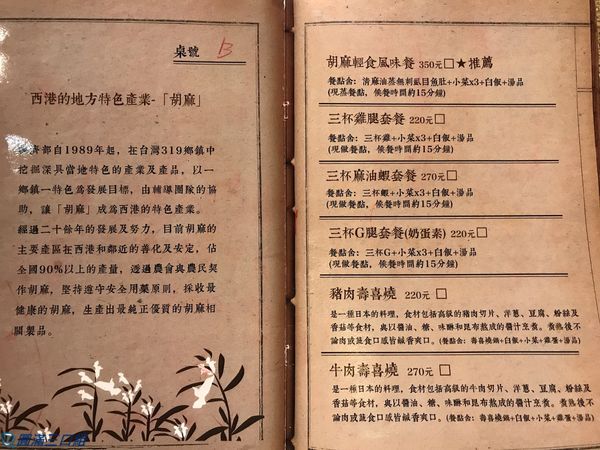 桌號 B
西港的地方特色產業-「胡麻」
濟部自1989年起，在台灣319鄉鎮中
挖掘深具當地特色的產業及產品，以一
鄉鎮一特色為發展目標，由輔導團隊的協
助，讓「胡麻」成為西港的特色產業。
經過二十餘年的發展及努力，目前胡麻的
主要產區在西港和鄰近的善化及安定，佔
全國90%以上的產量，透過農會與農民契
作胡麻，堅持遵守安全用藥原則，採收最
健康的胡麻，生產出最純正優質的胡麻相
關製品。
胡麻輕食風味餐 350元□★推薦
餐點含：清麻油蒸無刺虱目魚肚+小菜x3+白飯+湯品
(現蒸餐點，候餐時間約15分鐘)
三杯雞腿套餐 220元□
餐點含：三杯雞+小菜x3+白飯+湯品
(現做餐點，候餐時間約15分鐘)
三杯麻油蝦套餐 270元□
餐點含：三杯蝦+小菜x3+白飯+湯品
(現做餐點，候餐時間約15分鐘)
三杯G腿套餐(奶蛋素) 220元□
餐點含：三杯G+小菜x3+白飯+湯品
(現做餐點，候餐時間約15分鐘)
豬肉壽喜燒 220元□
是一種日本的料理，食材包括高級的豬肉切片、洋蔥、豆腐、粉絲及
香菇等食材，與以醬油、糖、味醂和昆布熬成的醬汁烹煮。煮熟後不
論肉或蔬食口感皆鹹香爽口。(餐點含：壽喜燒鍋+白飯+小菜+雞蛋+湯品)
牛肉壽喜燒 270元□
是一種日本的料理，食材包括高級的牛肉切片、洋蔥、豆腐、粉絲及
香菇等食材，與以醬油、糖、味醂和昆布熬成的醬汁烹煮。煮熟後不
論肉或蔬食口感皆鹹香爽口。(餐點含：壽喜燒鍋+白飯+小菜+雞蛋+湯品)